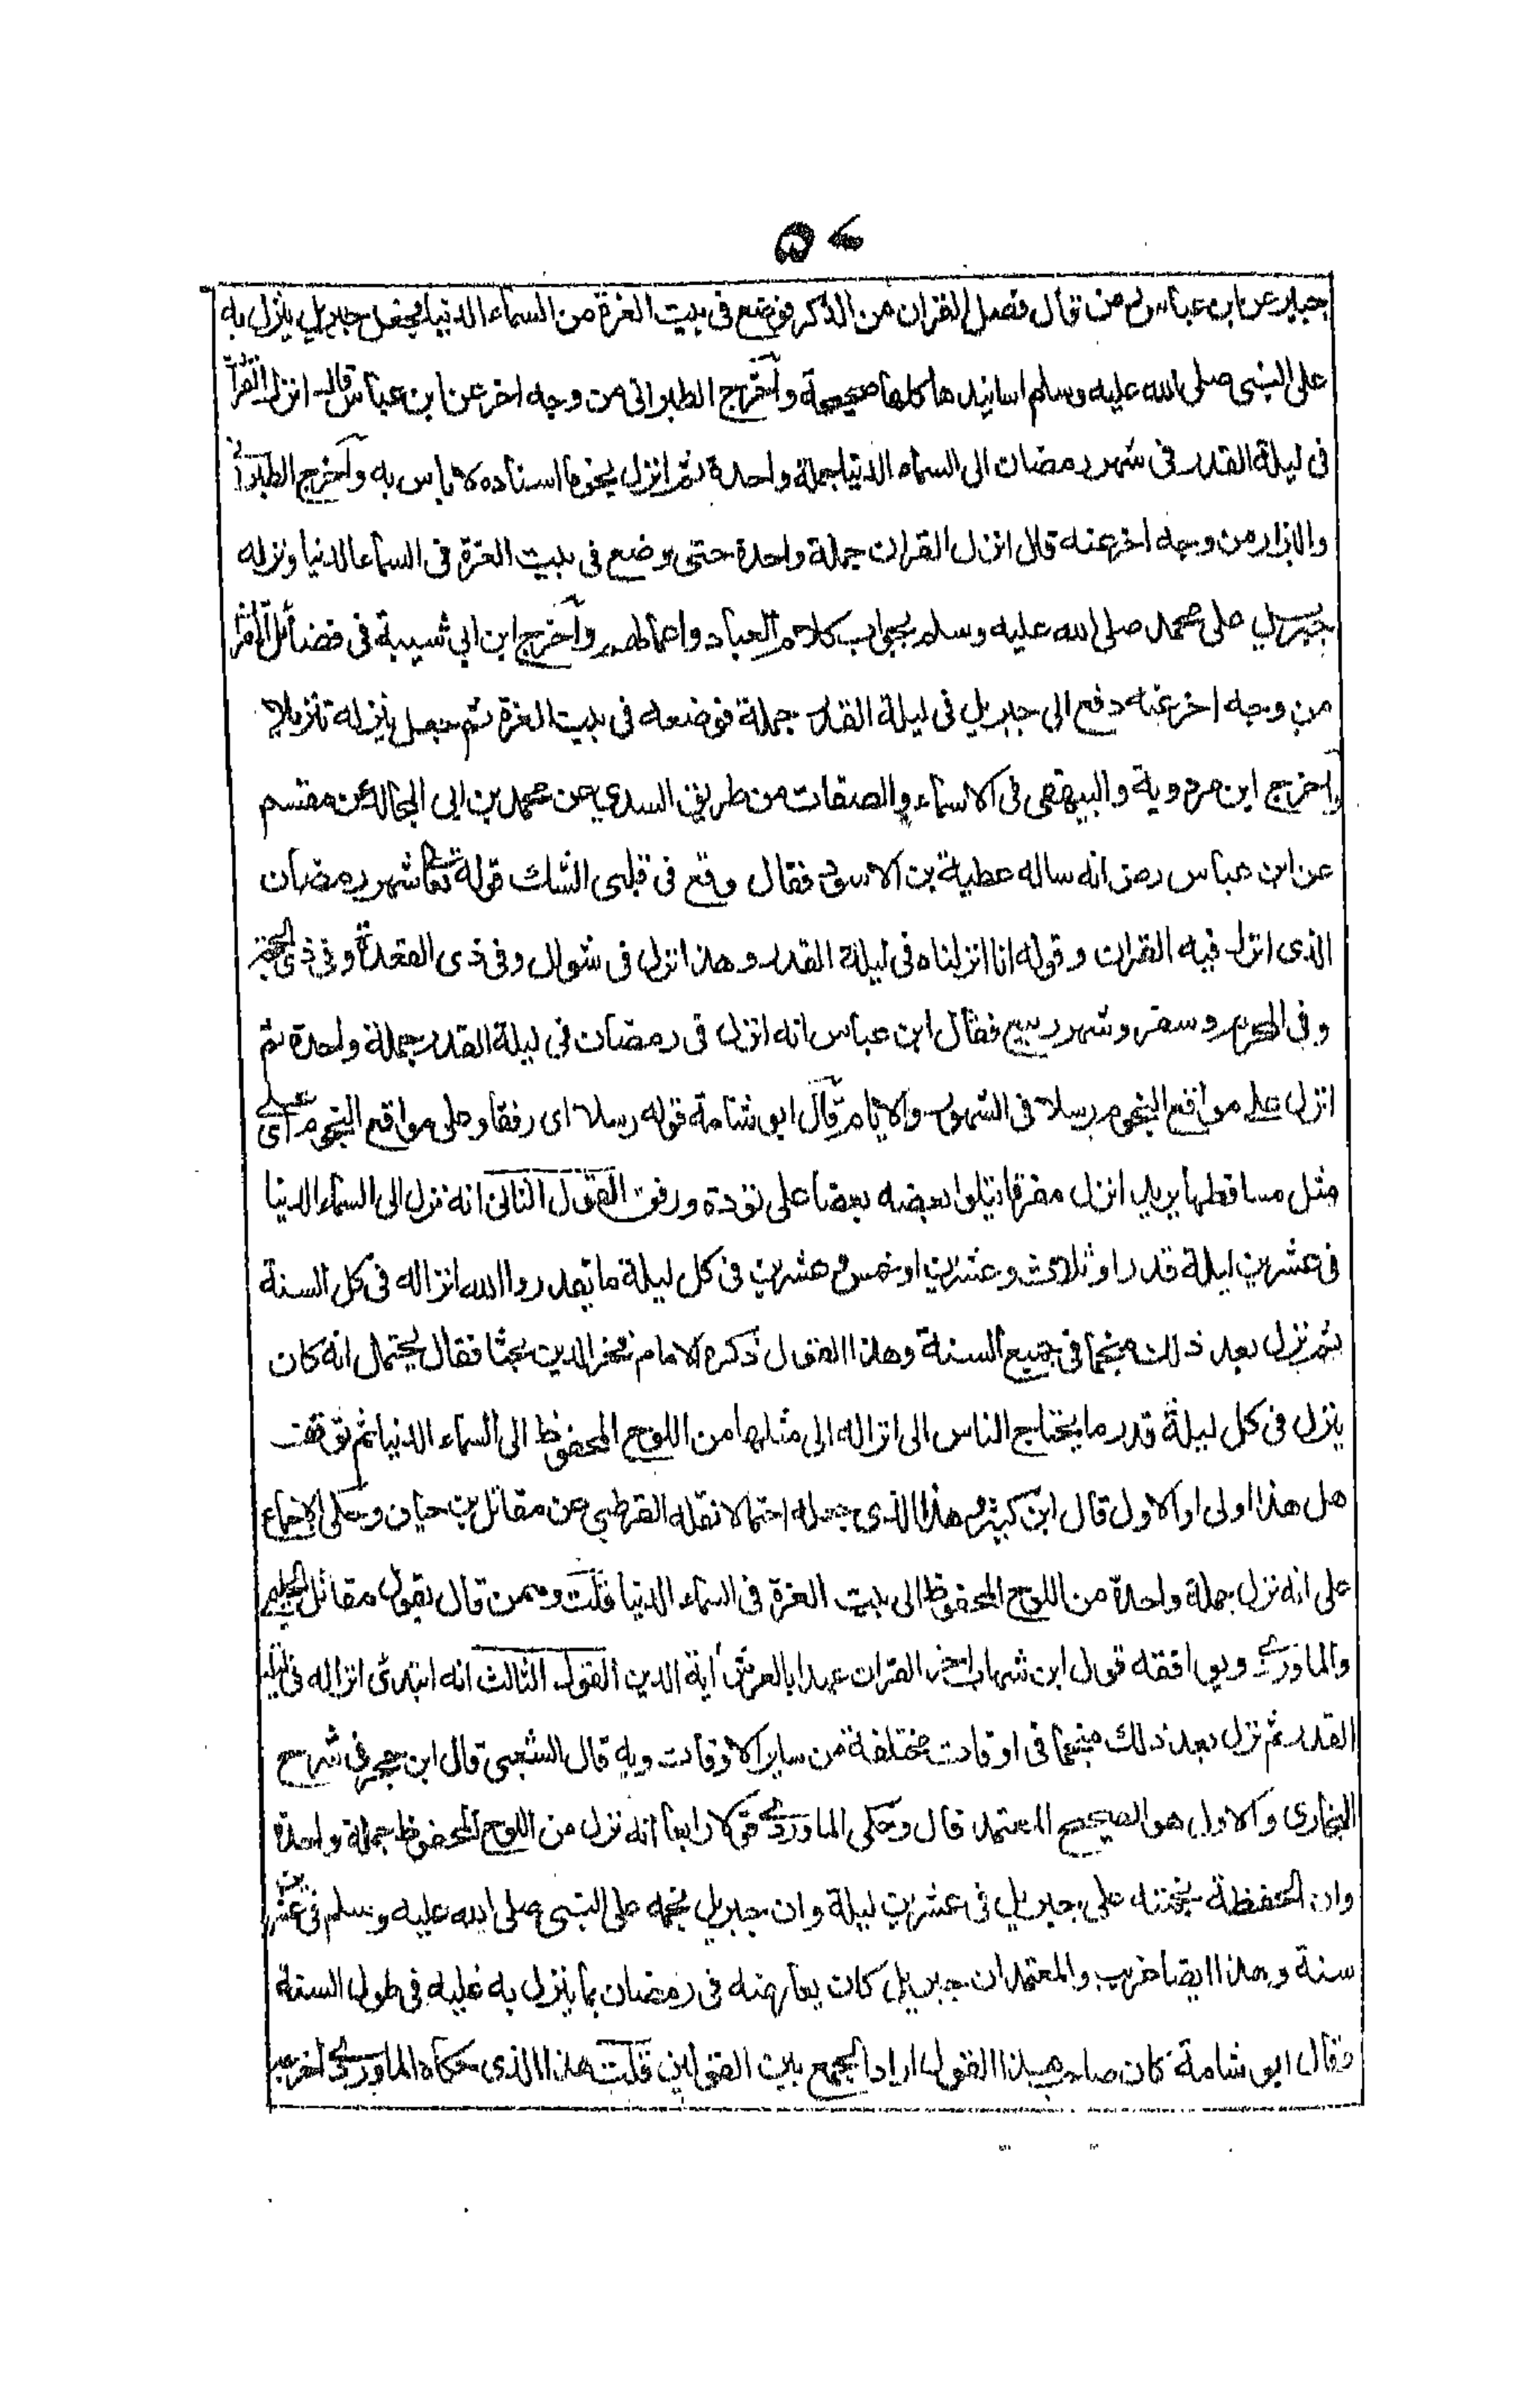 جبير عن ابن عباس رض قال فصل القران من الذكر فوضع فى بيت العزة من السماء الدنيا فجعل جبريل ينزل به
على النبى صلى الله عليه وسلم اسانيدها كلها صحيحة وأخرج الطبرانى من وجه اخر عن ابن عباس قال انزل القرآن
فى ليلة القدر فى شهر رمضان الى السماء الدنيا جملة واحدة ثم انزل نجوما اسناده لا باس به وأخرج الطبرانى
والبزار من وجه اخر عنه قال انزل القران جملة واحدة حتى وضع فى بيت العزة فى السماء الدنيا ونزله
جبريل على محمد صلى الله عليه وسلم بجواب كلام العباد واعمالهم وأخرج ابن ابي شيبة فى فضائل القرآن
من وجه اخر عنه دفع الى جبريل فى ليلة القدر جملة فوضعه فى بيت العزة ثم جعل ينزله تنزيلا
واخرج ابن مردوية والبيهقى فى الاسماء والصفات من طريق السدي عن محمد بن ابى المجالد عن مقسم
عن ابن عباس رض انه ساله عطية بن الاسود فقال وقع فى قلبى الشك قوله تعا شهر رمضان
الذى انزل فيه القران وقوله انا انزلناه فى ليلة القدر وهذا انزل فى شوال وفى ذى القعدة وفى ذى الحجة
وفى المحرم وسفر وشهر ربيع فقال ابن عباس انه انزل فى رمضان فى ليلة القدر جملة واحدة ثم
انزل على مواقع النجوم رسلا فى الشهور والايام قال ابو شامة قوله رسلا اى رفقا وعلى مواقع النجوم اى على
مثل مساقطها يريد انزل مفرقا يتلوا بعضه بعضا على تؤدة ورفق القول الثانى انه نزل الى السماء الدنيا
فى عشرين ليلة قدر او ثلاث وعشرين او خمس وعشرين فى كل ليلة ما يقدر والله انزاله فى كل السنة
ثم نزل بعد ذلك منجما فى جميع السنة وهذا القول ذكره الامام فخر الدين بحثا فقال يحتمل انه كان
ينزل فى كل ليلة قدر ما يحتاج الناس الى انزاله الى مثلها من اللوح المحفوظ الى السماء الدنيا ثم توقف
هل هذا اولى او الاول قال ابن كثير هذا الذى جعله احتمالا نقله القرطبي عن مقاتل بن حيان وحكى الاجماع
على انه نزل جملة واحدة من اللوح المحفوظ الى بيت العزة فى السماء الدنيا قلت وممن قال بقول مقاتل الحليمى
والماوردى ويوافقه قول ابن شهاب اخر القران عهدا بالعرش آية الدين القول الثالث انه ابتدئ انزاله فى ليلة
القدر ثم نزل بعد ذلك منجما فى اوقات مختلفة من ساير الاوقات وبه قال الشعبى قال ابن حجر فى شرح
البخارى والاول هو الصحيح المعتمد قال وحكى الماوردى قولا رابعا انه نزل من اللوح المحفوظ جملة واحدة
وان الحفظة نجمته على جبريل فى عشرين ليلة وان جبريل نجمه على النبى صلى الله عليه وسلم فى عشرين
سنة وهذا ايضا غريب والمعتمد ان جبريل كان يعارضه فى رمضان بما ينزل به عليه فى طول السنة
وقال ابو شامة كان صاحب هذا القول اراد الجمع بين القولين قلت هذا الذى حكاه الماوردى اخرجه